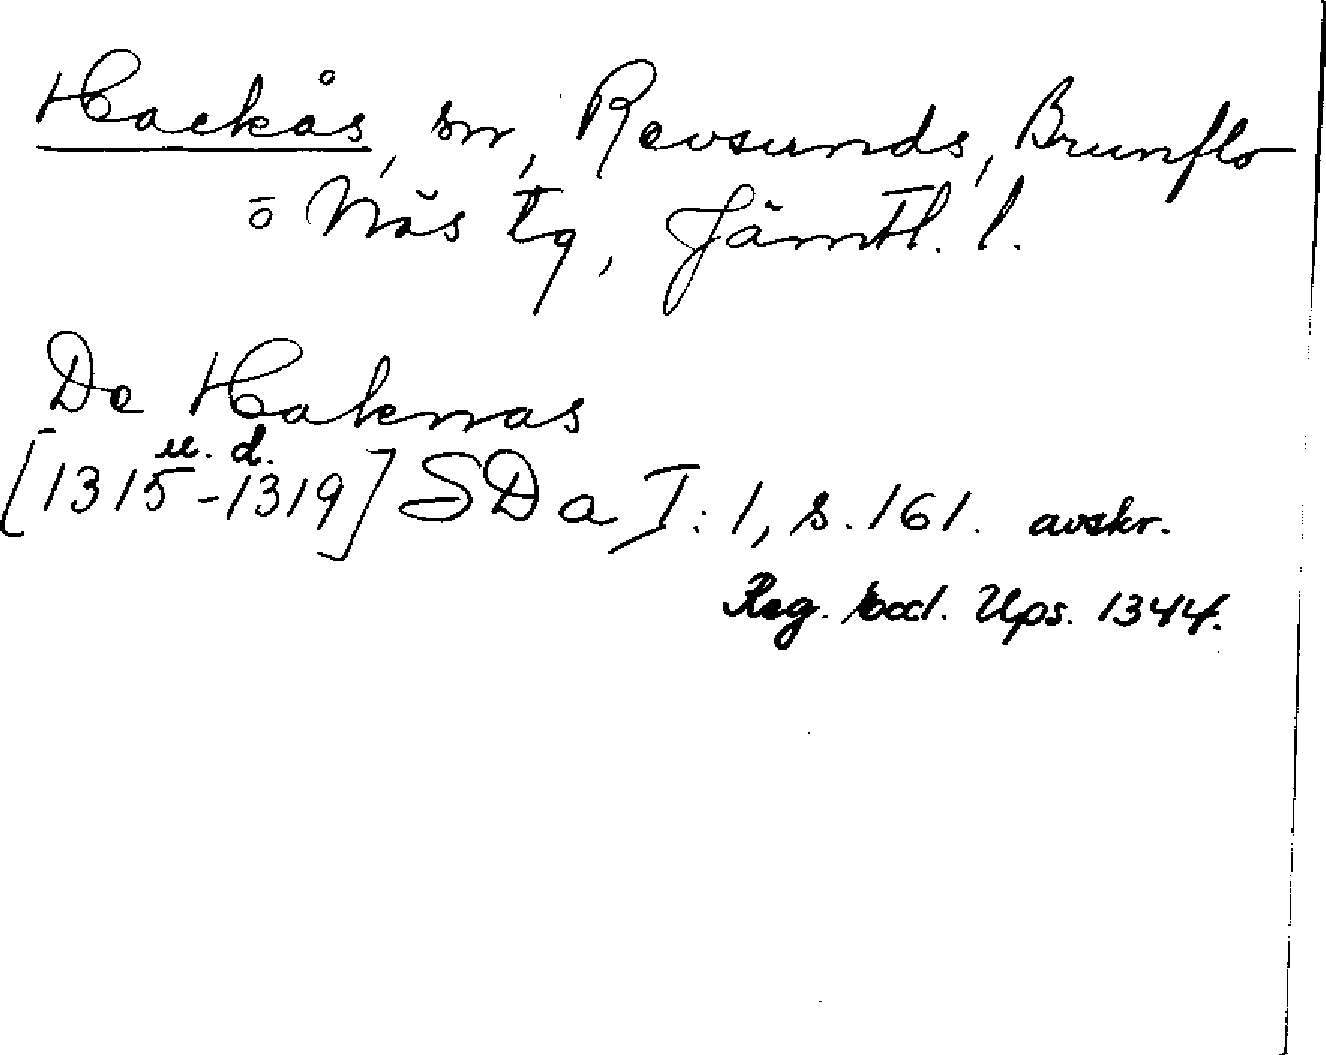 Hackås, sn, Revsunds, Brunflo
o Näs tg, Jämtl. l.
De Haknas
u. d.
[1315-1319] SDa I:1, s. 161. avskr.
Reg. eccl. Ups. 1344.